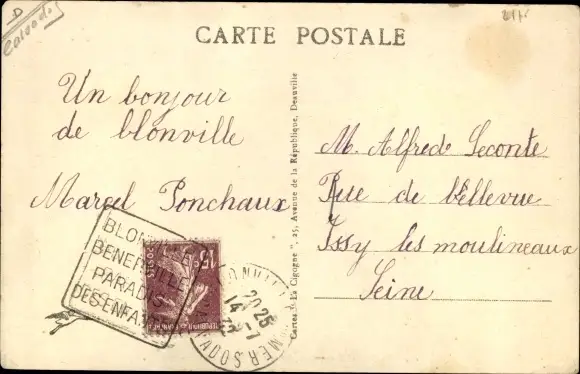 D
Calvados
CARTE POSTALE
Un bonjour
de blonville
Marcel Ponchaux
M. Alfred Leconte
Rue de bellevue
Issy les moulineaux
Seine
Cartes "La Cigogne", 25, Avenue de la République, Deauville
BLONVILLE
BENERVILLE
PARADIS
DES ENFANTS
15
20 25
14 -7